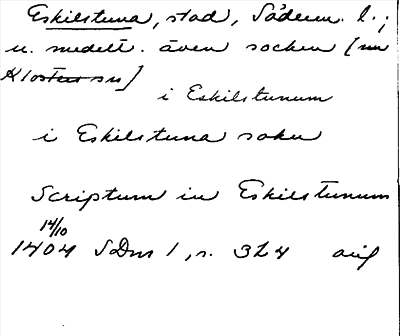 Eskilstuna, stad, Söderm. l.;
u. medelt. även socken [nu
Klosters sn]
i Eskilstunum
i Eskilstuna sokn
Scriptum in Eskilstunum
14/10
1404 SDns 1, s. 324